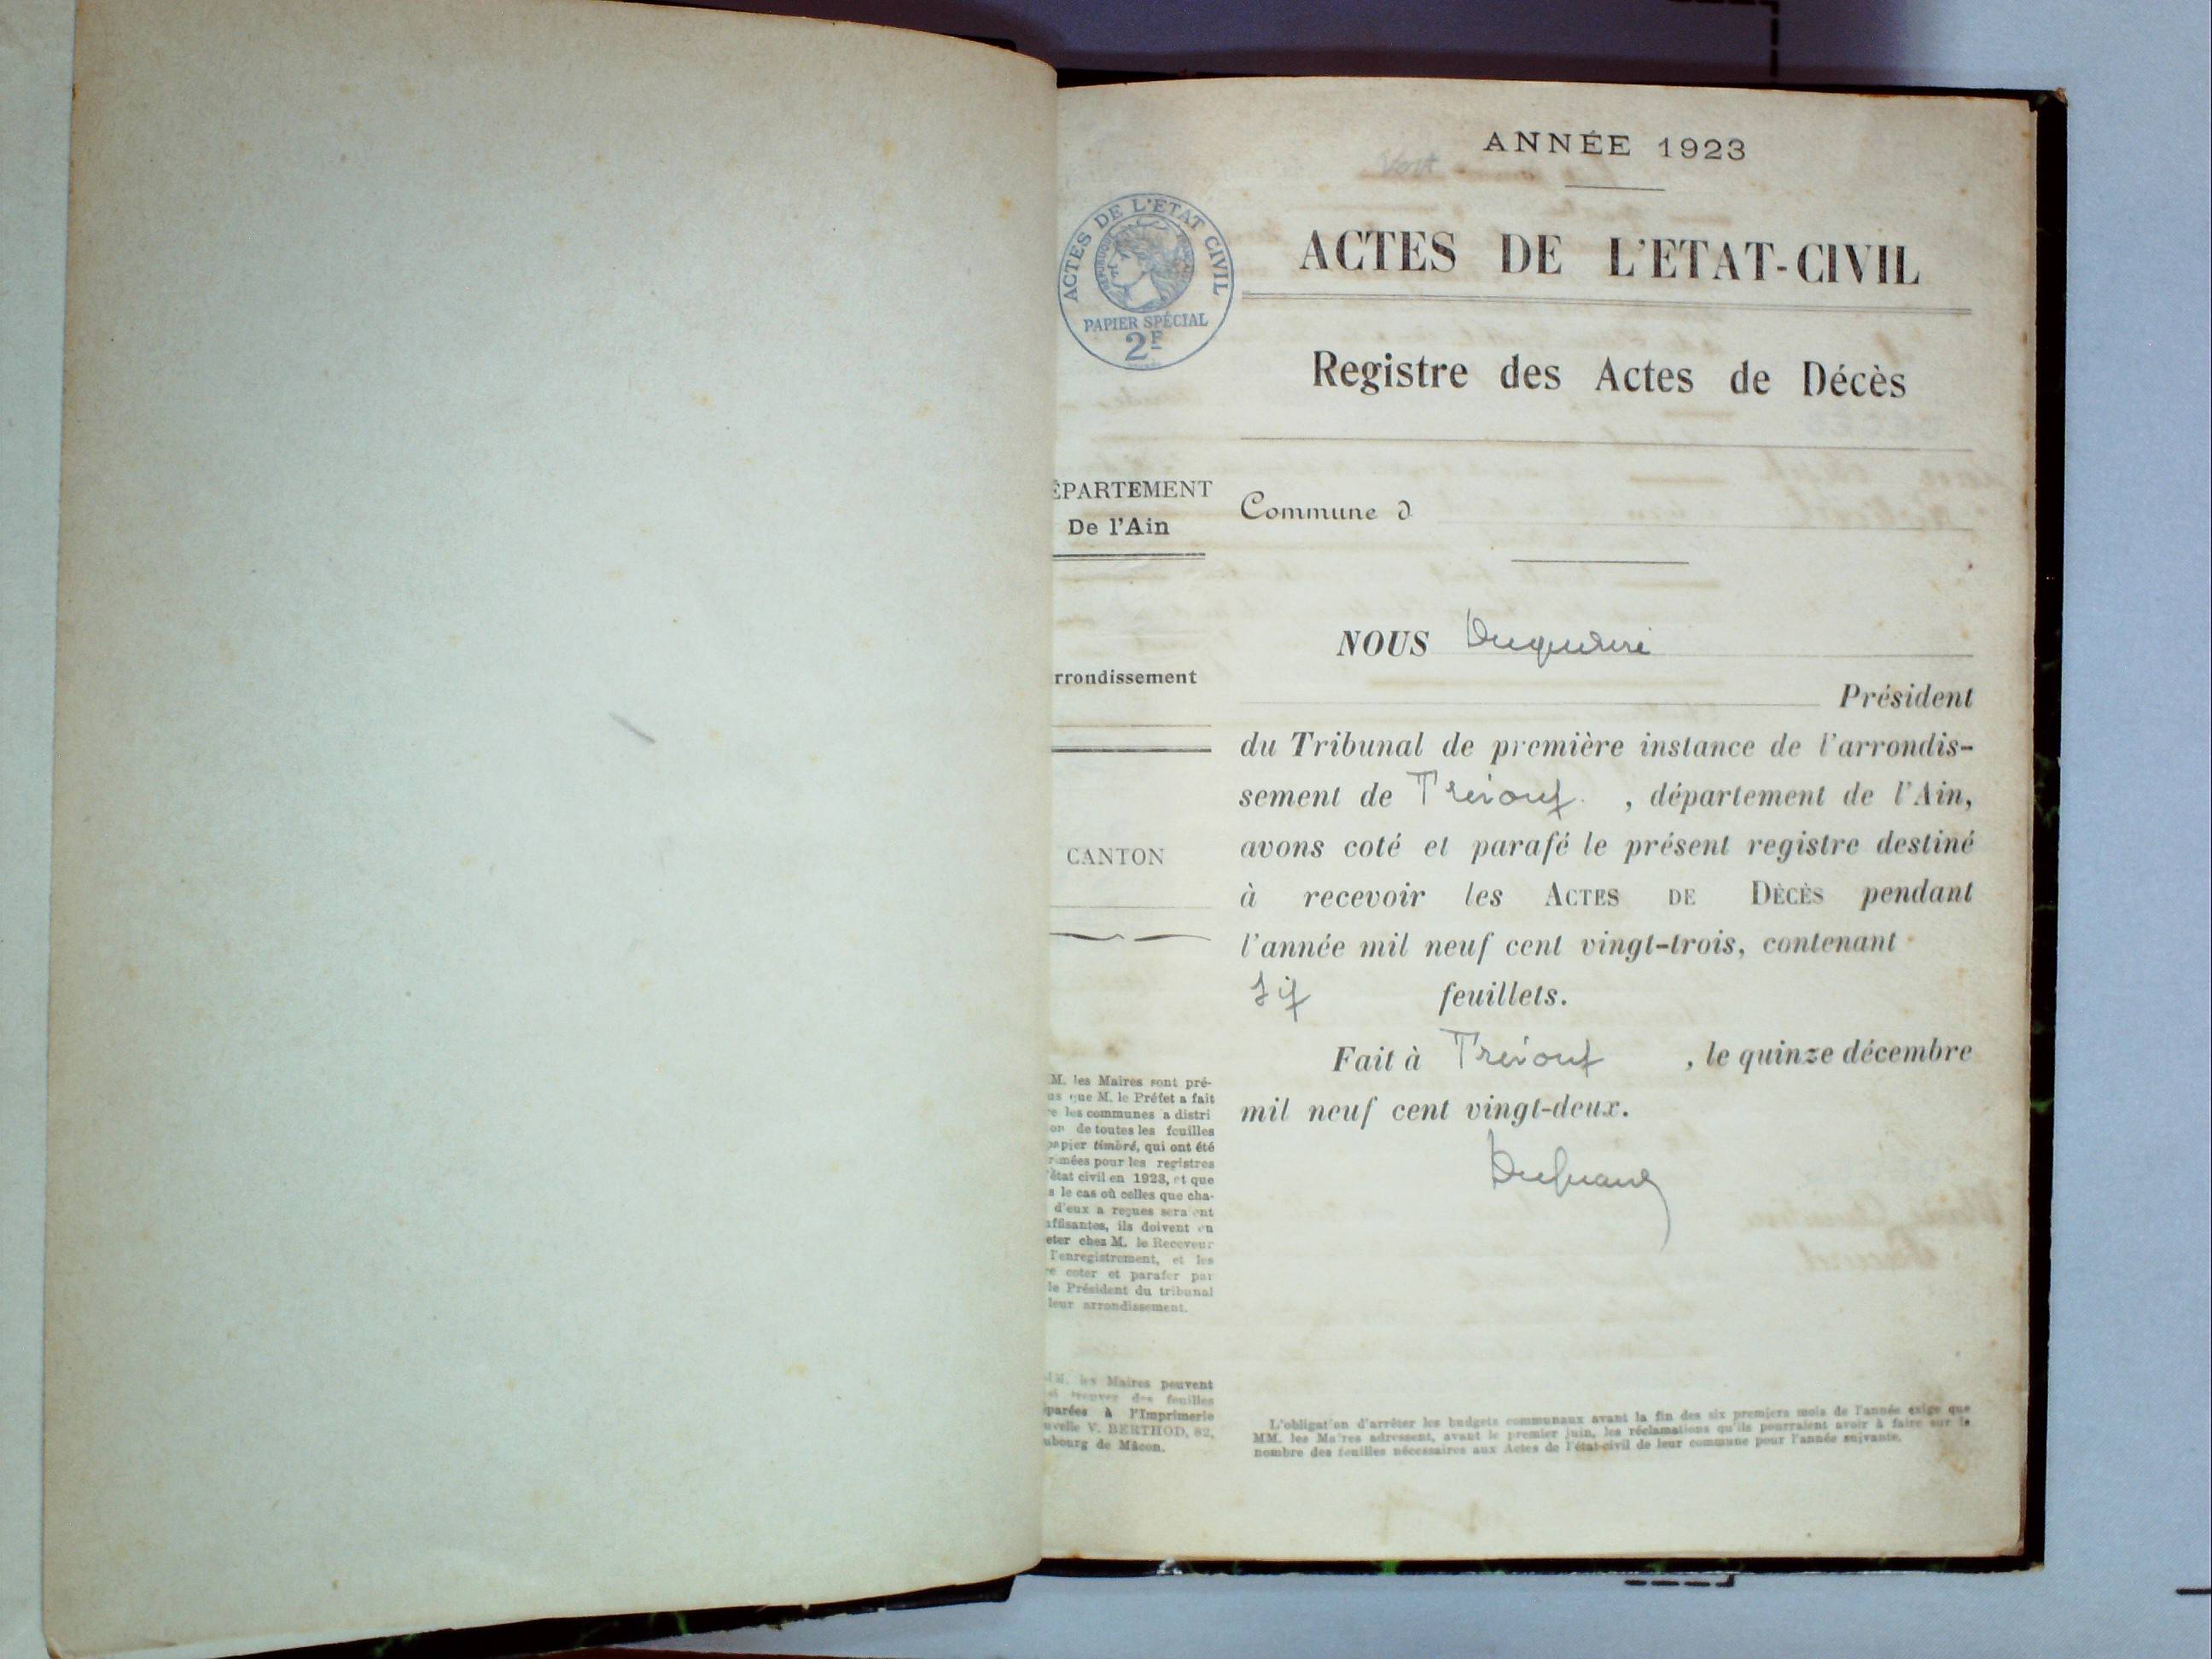 ANNÉE 1923
ACTES DE L'ETAT CIVIL
PAPIER SPÉCIAL
2F
ACTES DE L'ETAT-CIVIL
Registre des Actes de Décès
ÉPARTEMENT
De l'Ain
Commune d
NOUS
rrondissement
Président
du Tribunal de première instance de l'arrondis-
sement de Trévoux , département de l'Ain,
avons coté et parafé le présent registre destiné
CANTON
à recevoir les ACTES DE DÉCÈS pendant
l'année mil neuf cent vingt-trois, contenant
six feuillets.
Fait à Trévoux , le quinze décembre
mil neuf cent vingt-deux.
M. les Maires sont pré-
us que M. le Préfet a fait
re les communes a distri
on de toutes les feuilles
papier timbré, qui ont été
rimées pour les registres
l'état civil en 1923, et que
s le cas où celles que cha-
d'eux a reçues seraient
uffisantes, ils doivent en
eter chez M. le Receveur
l'enregistrement, et les
re coter et parafer par
le Président du tribunal
leur arrondissement.
MM. les Maires peuvent
si trouver des feuilles
éparées à l'Imprimerie
uvelle V. BERTHOD, 82,
ubourg de Mâcon.
L'obligation d'arrêter les budgets communaux avant la fin des six premiers mois de l'année exige que
MM. les Maires adressent, avant le premier juin, les réclamations qu'ils pourraient avoir à faire sur le
nombre des feuilles nécessaires aux Actes de l'état-civil de leur commune pour l'année suivante.